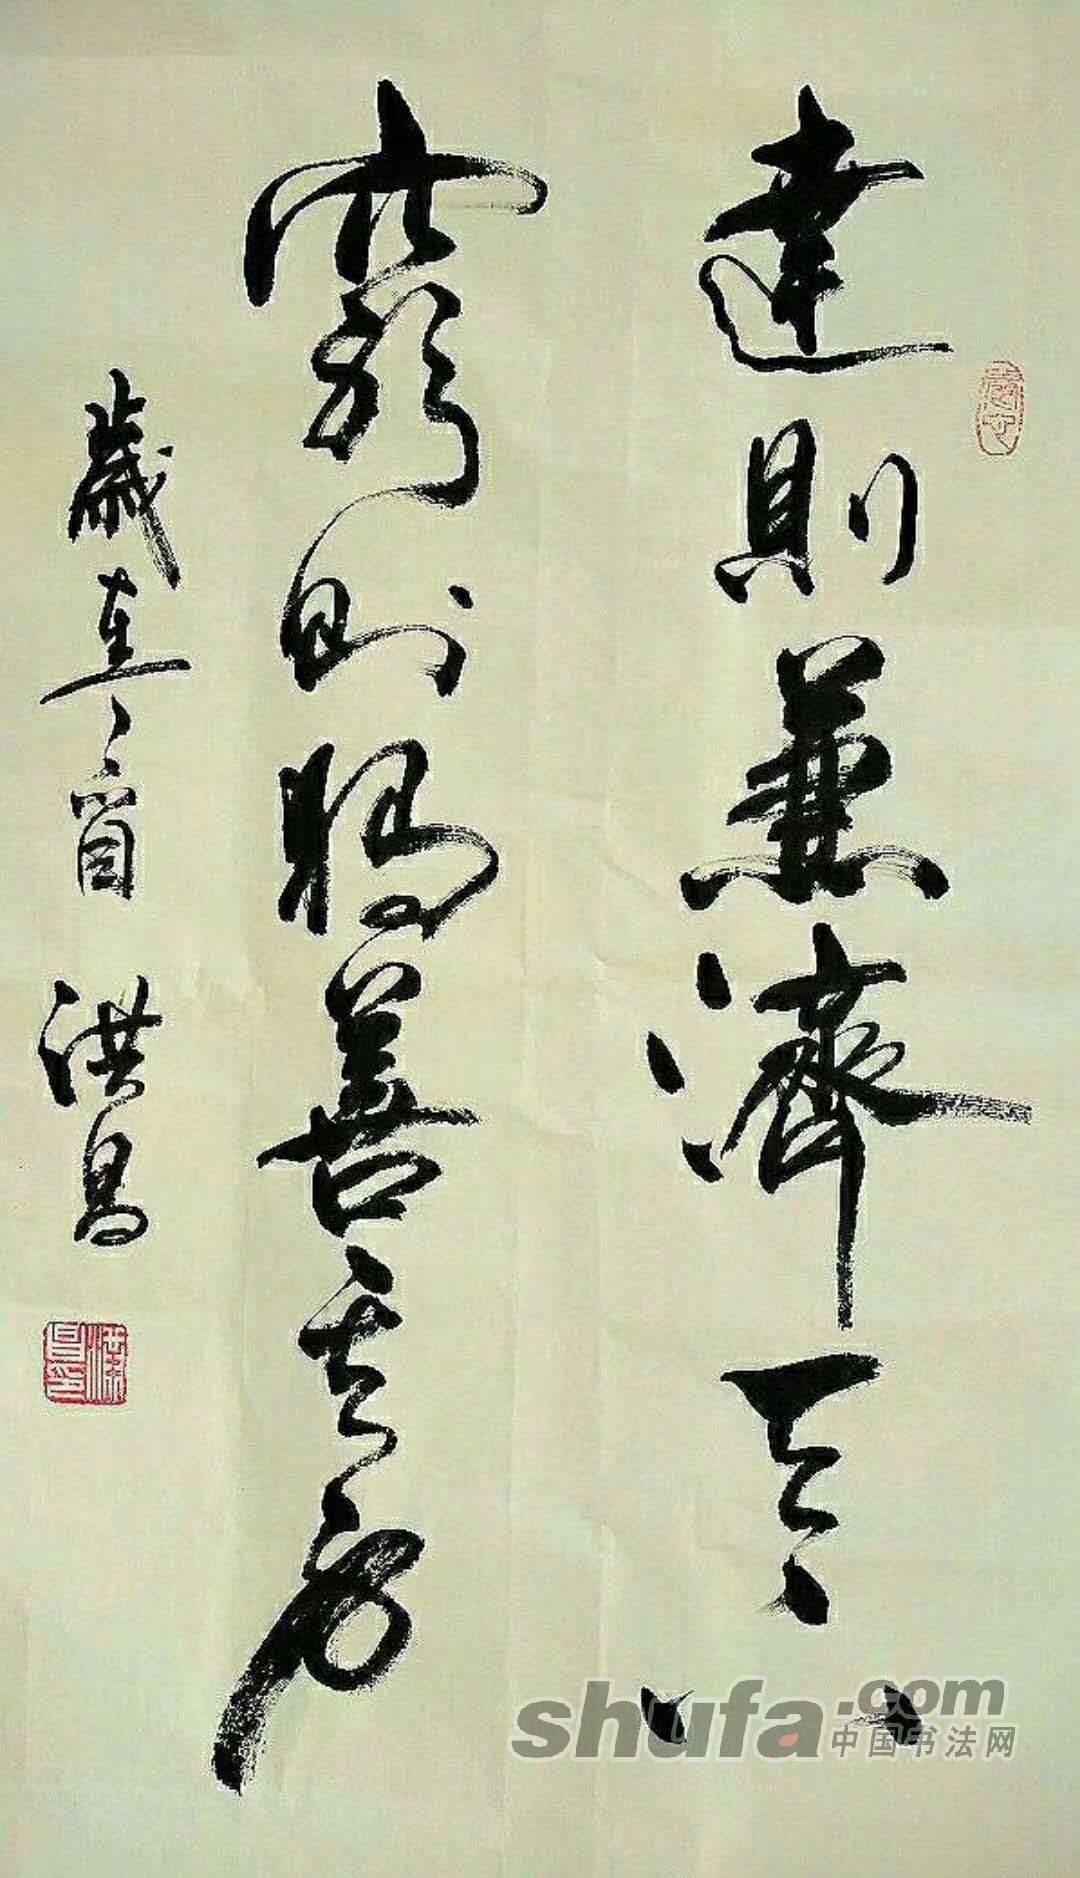 達則兼濟天下
窮則獨善其身
歲在丁酉 洪昌
shufa.com
中国书法网